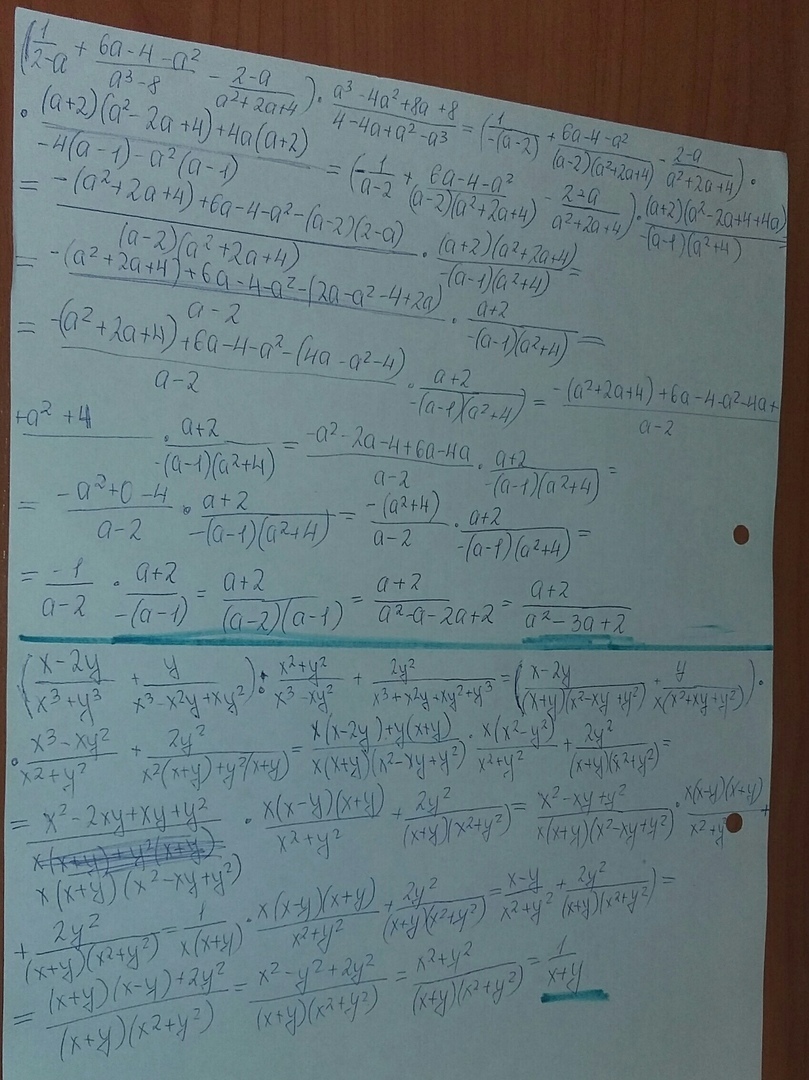 (1/(2-a) + (6a-4-a²)/(a³-8) - (2-a)/(a²+2a+4)) · (a³-4a²+8a+8)/(4-4a+a²-a³) = (1/(-(a-2)) + (6a-4-a²)/((a-2)(a²+2a+4)) - (2-a)/(a²+2a+4)) ·
· ((a+2)(a²-2a+4)+4a(a+2))/(-4(a-1)-a²(a-1)) = (-1/(a-2) + (6a-4-a²)/((a-2)(a²+2a+4)) - (2-a)/(a²+2a+4)) · ((a+2)(a²-2a+4+4a))/(-(a-1)(a²+4)) =
= (-(a²+2a+4)+6a-4-a²-(a-2)(2-a))/((a-2)(a²+2a+4)) · ((a+2)(a²+2a+4))/(-(a-1)(a²+4)) =
= (-(a²+2a+4)+6a-4-a²-(2a-a²-4+2a))/(a-2) · (a+2)/(-(a-1)(a²+4)) =
= (-(a²+2a+4)+6a-4-a²-(4a-a²-4))/(a-2) · (a+2)/(-(a-1)(a²+4)) = (-(a²+2a+4)+6a-4-a²-4a+)/(a-2)
+a²+4 · (a+2)/(-(a-1)(a²+4)) = (-a²-2a-4+6a-4a)/(a-2) · (a+2)/(-(a-1)(a²+4)) =
= (-a²+0-4)/(a-2) · (a+2)/(-(a-1)(a²+4)) = (-(a²+4))/(a-2) · (a+2)/(-(a-1)(a²+4)) =
= (-1)/(a-2) · (a+2)/(-(a-1)) = (a+2)/((a-2)(a-1)) = (a+2)/(a²-a-2a+2) = (a+2)/(a²-3a+2)
((x-2y)/(x³+y³) + y/(x³-x²y+xy²)) : (x²+y²)/(x³-xy²) + 2y²/(x³+x²y+xy²+y³) = ((x-2y)/((x+y)(x²-xy+y²)) + y/(x(x²+xy+y²))) ·
· (x³-xy²)/(x²+y²) + 2y²/(x²(x+y)+y²(x+y)) = (x(x-2y)+y(x+y))/(x(x+y)(x²-xy+y²)) · (x(x²-y²))/(x²+y²) + 2y²/((x+y)(x²+y²)) =
= (x²-2xy+xy+y²)/(x(x+y)(x²-xy+y²)) · (x(x-y)(x+y))/(x²+y²) + 2y²/((x+y)(x²+y²)) = (x²-xy+y²)/(x(x+y)(x²-xy+y²)) · (x(x-y)(x+y))/(x²+y²) +
+ 2y²/((x+y)(x²+y²)) = 1/(x(x+y)) · (x(x-y)(x+y))/(x²+y²) + 2y²/((x+y)(x²+y²)) = (x-y)/(x²+y²) + 2y²/((x+y)(x²+y²)) =
= ((x+y)(x-y)+2y²)/((x+y)(x²+y²)) = (x²-y²+2y²)/((x+y)(x²+y²)) = (x²+y²)/((x+y)(x²+y²)) = 1/(x+y)